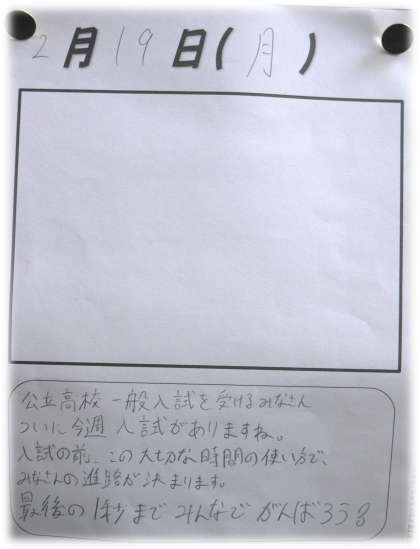 2月19日(月)
公立高校 一般入試を受けるみなさん
ついに今週 入試がありますね。
入試の前、この大切な時間の使い方で、
みなさんの進路が決まります。
最後の1秒まで みんなで がんばろう!